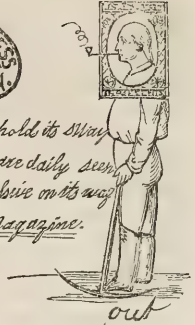 SS
hold its sway
are daily seen
on its way
Magazine.
out